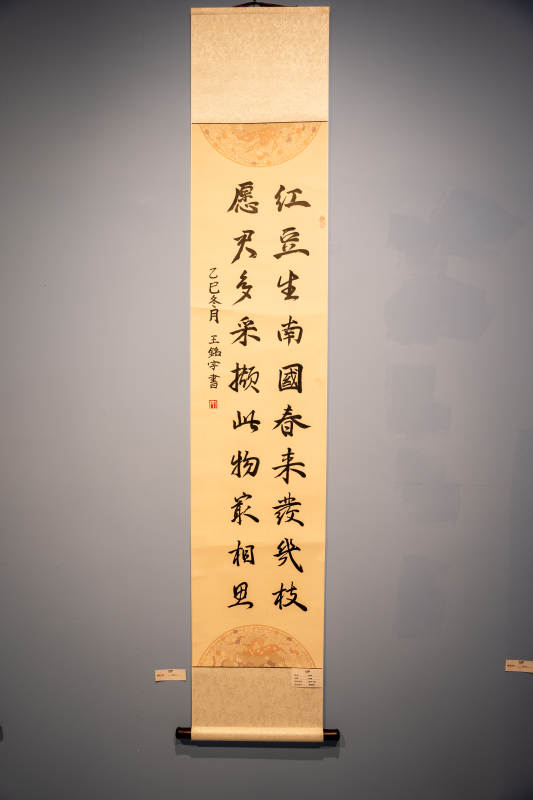 红豆生南國春来發幾枝
愿君多采擷此物最相思
乙巳冬月 王銘宇書